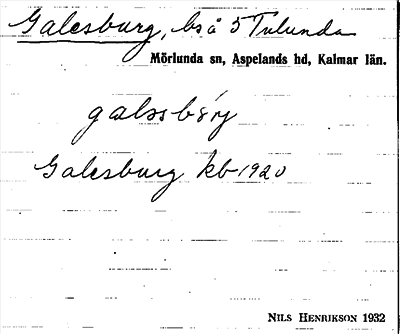 Galesburg, bs å 5 Tulunda
Mörlunda sn, Aspelands hd, Kalmar län.
galssbörj
Galesburg kb 1920
NILS HENRIKSON 1932